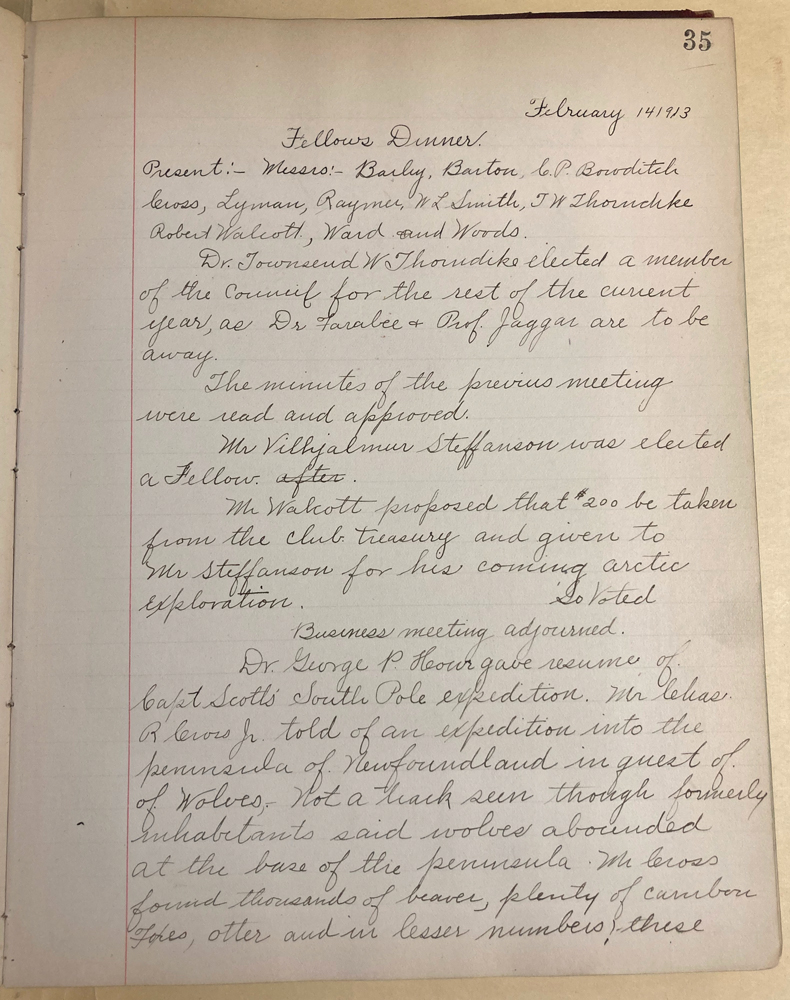 35
February 14 1913
Fellows Dinner.
Present:- Messrs:- Barby, Barton, C.P. Bowditch
Cross, Lyman, Raymer, W L Smith, T W Thorndike
Robert Walcott, Ward and Woods.
Dr. Townsend W Thorndike elected a member
of the Council for the rest of the current
year, as Dr Farabee + Prof. Jaggar are to be
away.
The minutes of the previus meeting
were read and approved.
Mr Vilhjalmur Steffanson was elected
a Fellow. after.
Mr Walcott proposed that $200 be taken
from the club treasury and given to
Mr Steffanson for his coming arctic
exploration. So Voted
Business meeting adjourned.
Dr. George P. Howe gave resume of
Capt Scotts' South Pole expedition. Mr Chas.
R Cross Jr. told of an expedition into the
peninsula of Newfoundland in quest of
of Wolves,- Not a track seen though formerly
inhabitants said wolves abounded
at the base of the peninsula. Mr Cross
found thousands of beaver, plenty of caribou
Foxes, otter and in lesser numbers; these